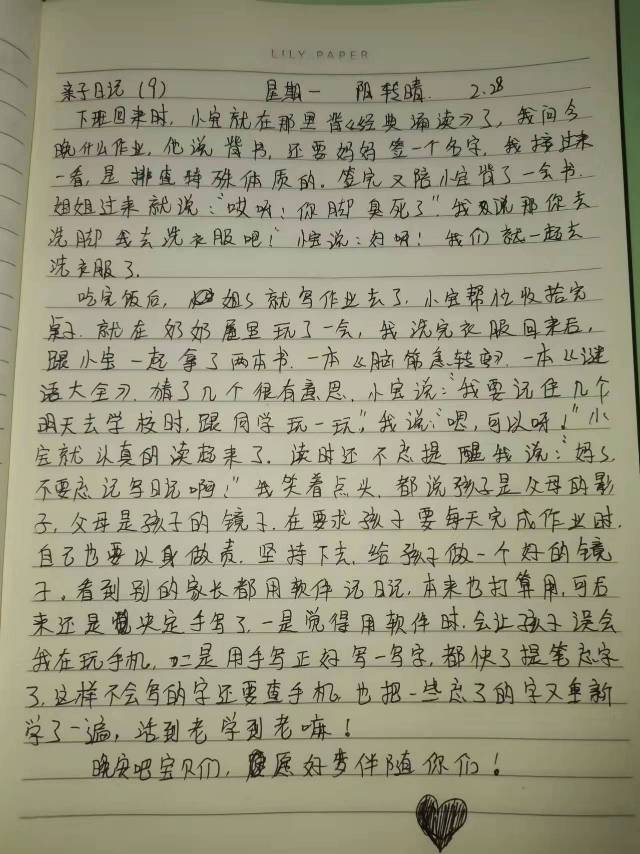 LILY PAPER
亲子日记(9) 星期一 阴转晴. 2.28
下班回来时,小宝就在那里背《经典诵读》了,我问今
晚什么作业,他说背书,还要妈妈签一个名字,我接过来
一看,是排查特殊体质的。签完又陪小宝背了一会书.
姐姐过来就说:"哎呀!你脚臭死了"我又说那你去
洗脚我去洗衣服吧!"小宝说:好呀!我们就一起去
洗衣服了.
吃完饭后,姐ㄑ就写作业去了,小宝帮忙收拾完
桌子.就在奶奶屋里玩了一会,我洗完衣服回来后,
跟小宝一起拿了两本书.一本《脑筋急转弯》.一本《谜
语大全》.猜了几个很有意思.小宝说:"我要记住几个
明天去学校时,跟同学玩一玩",我说:"嗯,可以呀!"小
宝就认真的读起来了.读时还不忘提醒我说:"妈ㄑ
不要忘记写日记啊!"我笑着点头.都说孩子是父母的影
子,父母是孩子的镜子.在要求孩子要每天完成作业时.
自己也要以身做责.坚持下去.给孩子做一个好的镜
子。看到别的家长都用软件记日记,本来也打算用,可后
来还是决定手写了.一是觉得用软件时.会让孩子误会
我在玩手机,二是用手写正好写一写字,都快了提笔忘字
了.这样不会写的字还要查手机.也把一些忘了的字又重新
学了一遍,活到老学到老嘛!
晚安吧宝贝们,愿好梦伴随你们!